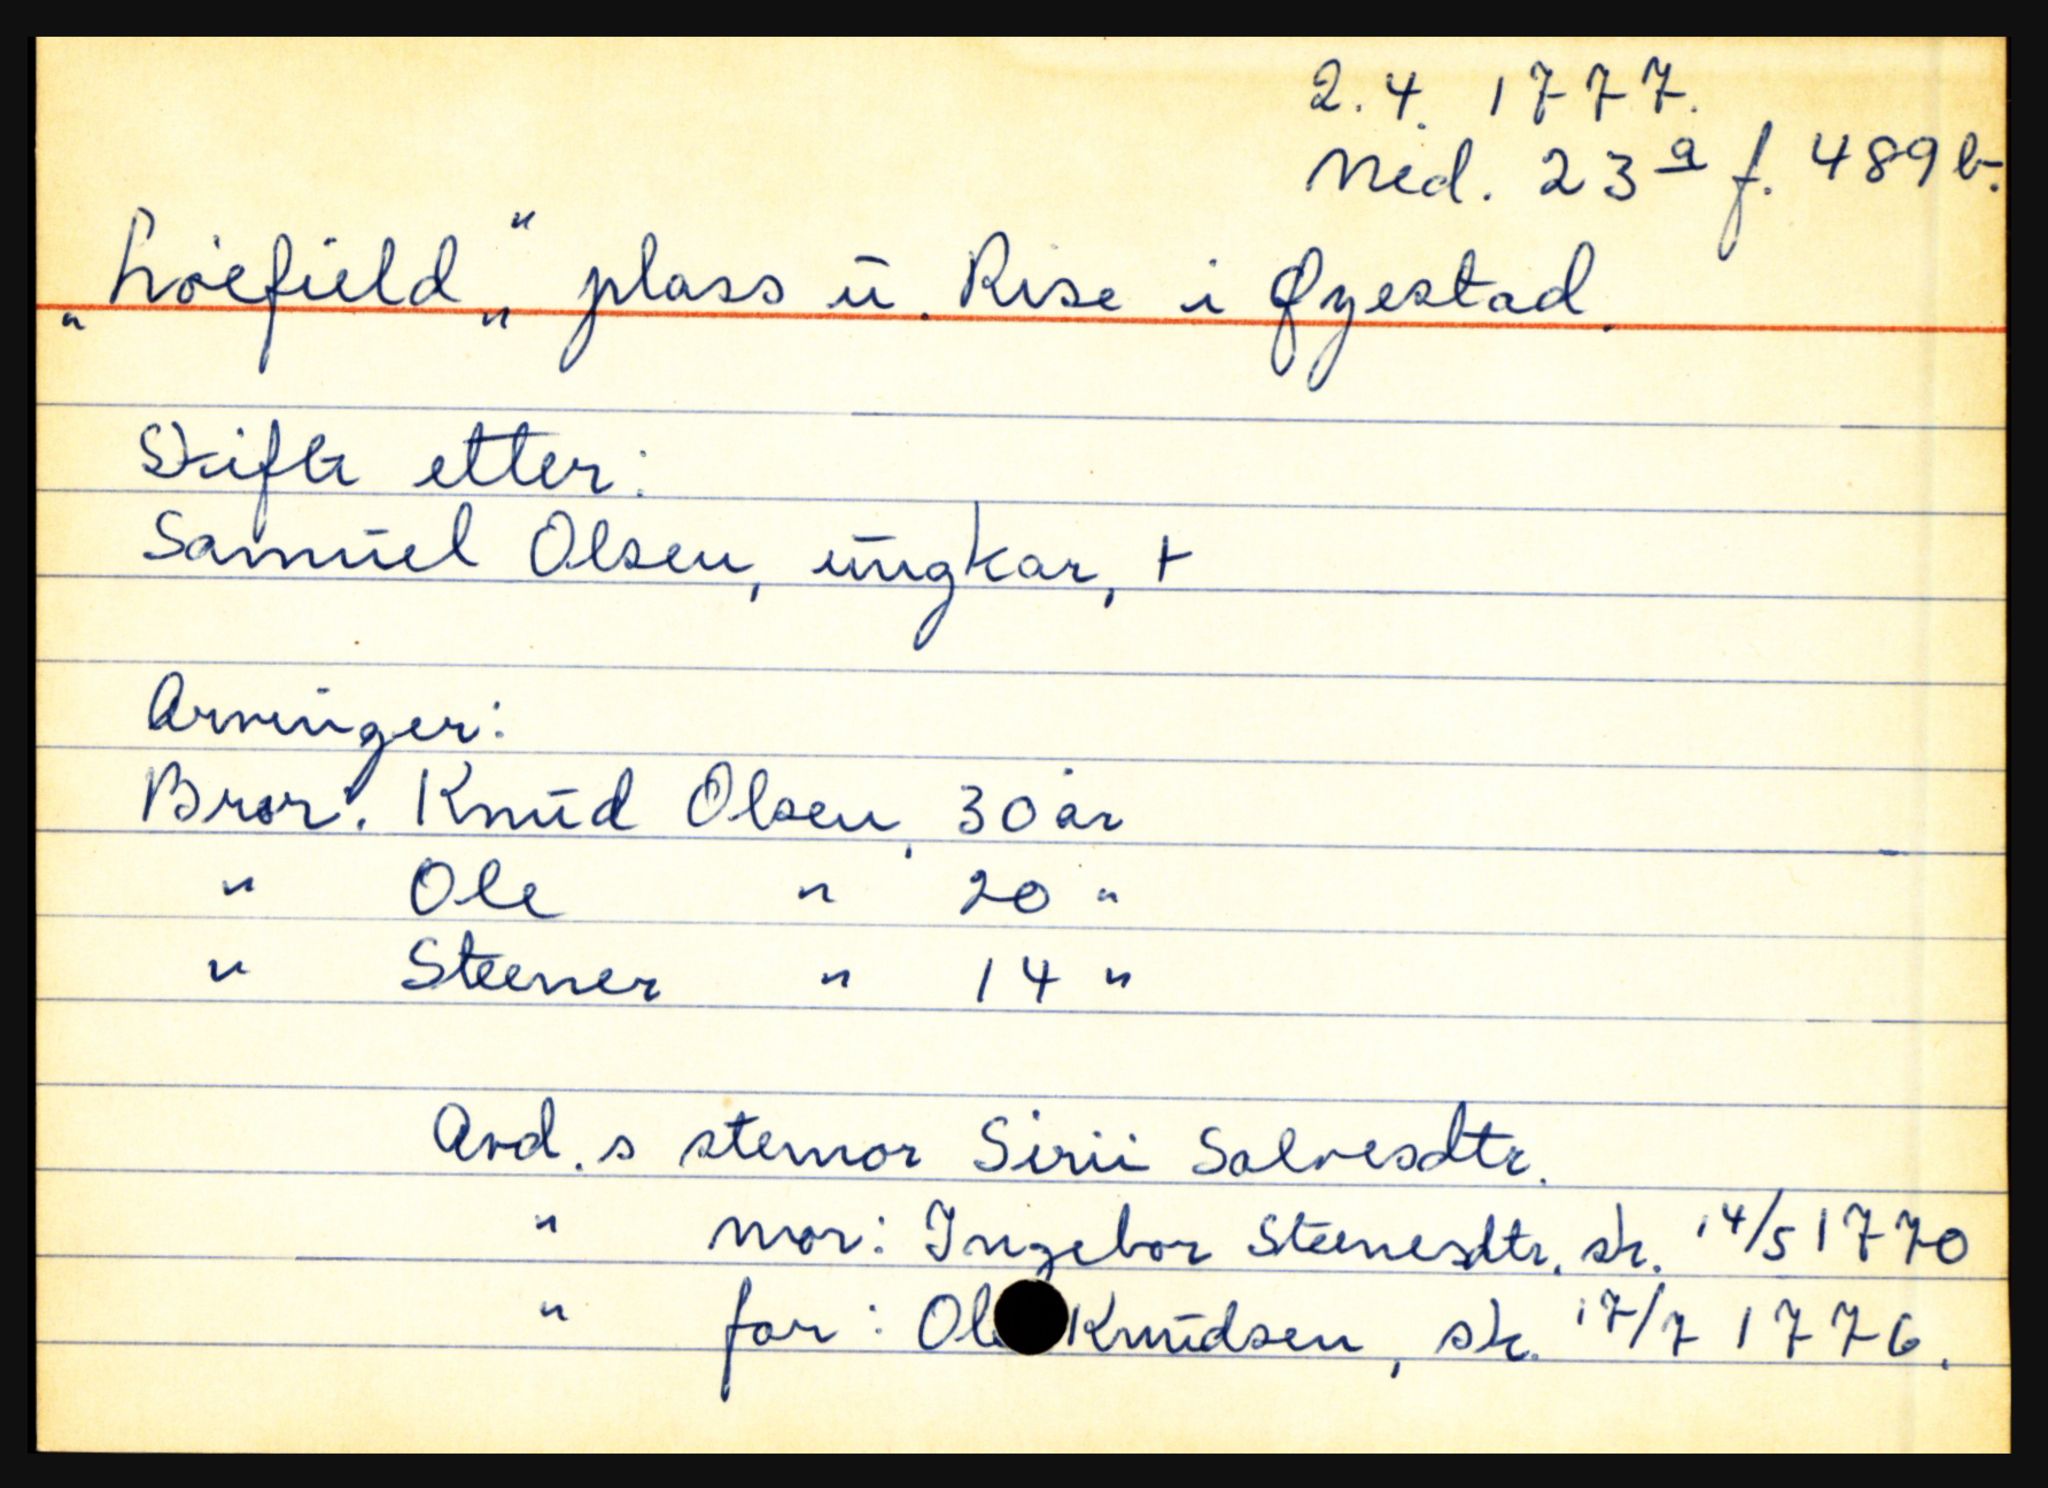 2.4. 1777.
Ned. 23a f. 489b.
"Løefield", plass u. Rise i Øyestad.
Skifte etter:
Samuel Olsen, ungkar, +
Arvinger:
Bror: Knud Olsen, 30 år
" Ole " 20 "
" Steener " 14 "
Avd.s stemor Sirii Salvesdtr.
" mor: Ingebor Steenesdtr. sk. 14/5 1770
" far: Ole Knudsen, sk. 17/7 1776.